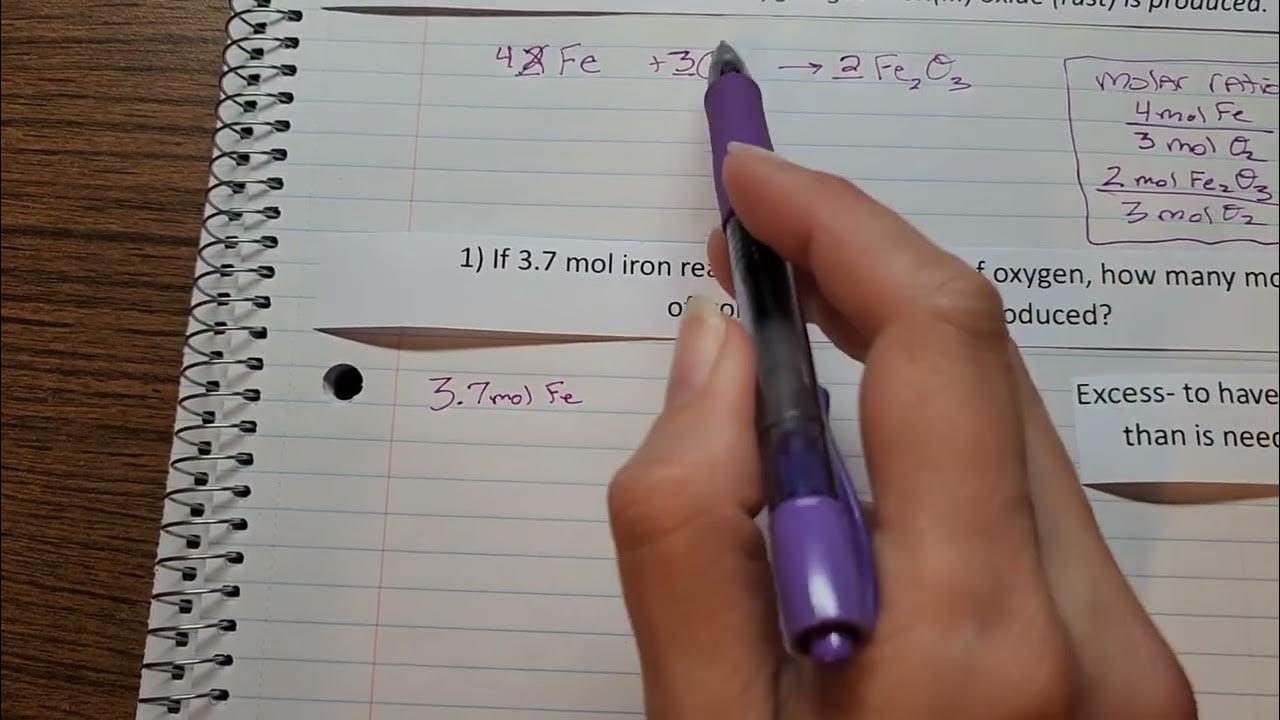 oxide (rust) is produced.
4 Fe + 3 → 2 Fe₂O₃
molar ratio
4 mol Fe
3 mol O₂
2 mol Fe₂O₃
3 mol O₂
1) If 3.7 mol iron oxygen, how many
of
3.7 mol Fe
Excess- to have
than is